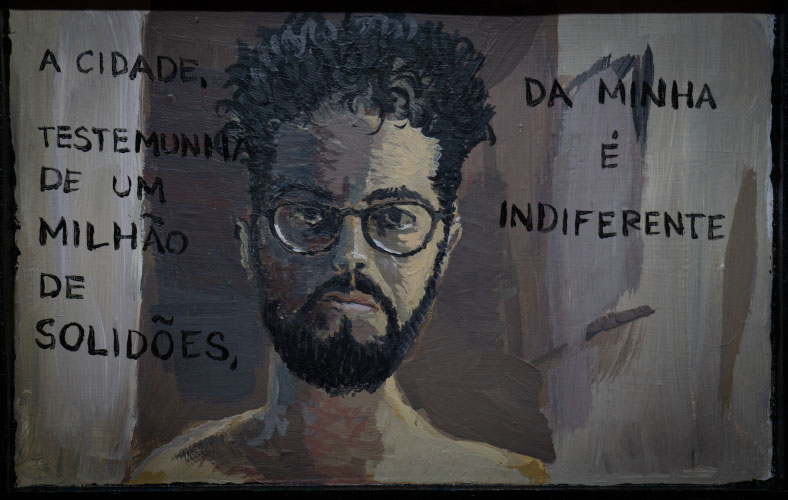 A CIDADE,
TESTEMUNHA
DE UM
MILHÃO
DE
SOLIDÕES,
DA MINHA
É
INDIFERENTE